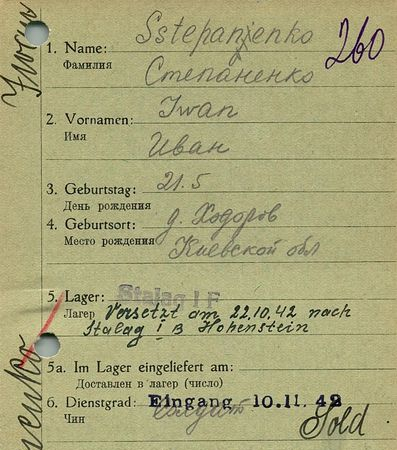 260
1. Name: Sstepanjenko
Фамилия Степаненко
2. Vornamen: Iwan
Имя Иван
3. Geburtstag: 21.5
День рождения
4. Geburtsort: д. Ходоров
Место рождения Киевской обл
5. Lager: Stalag I F
Лагер Versetzt am 22.10.42 nach
Stalag I B Hohenstein
5a. Im Lager eingeliefert am:
Доставлен в лагер (число)
6. Dienstgrad: Eingang 10.11.42
Чин солдат Sold